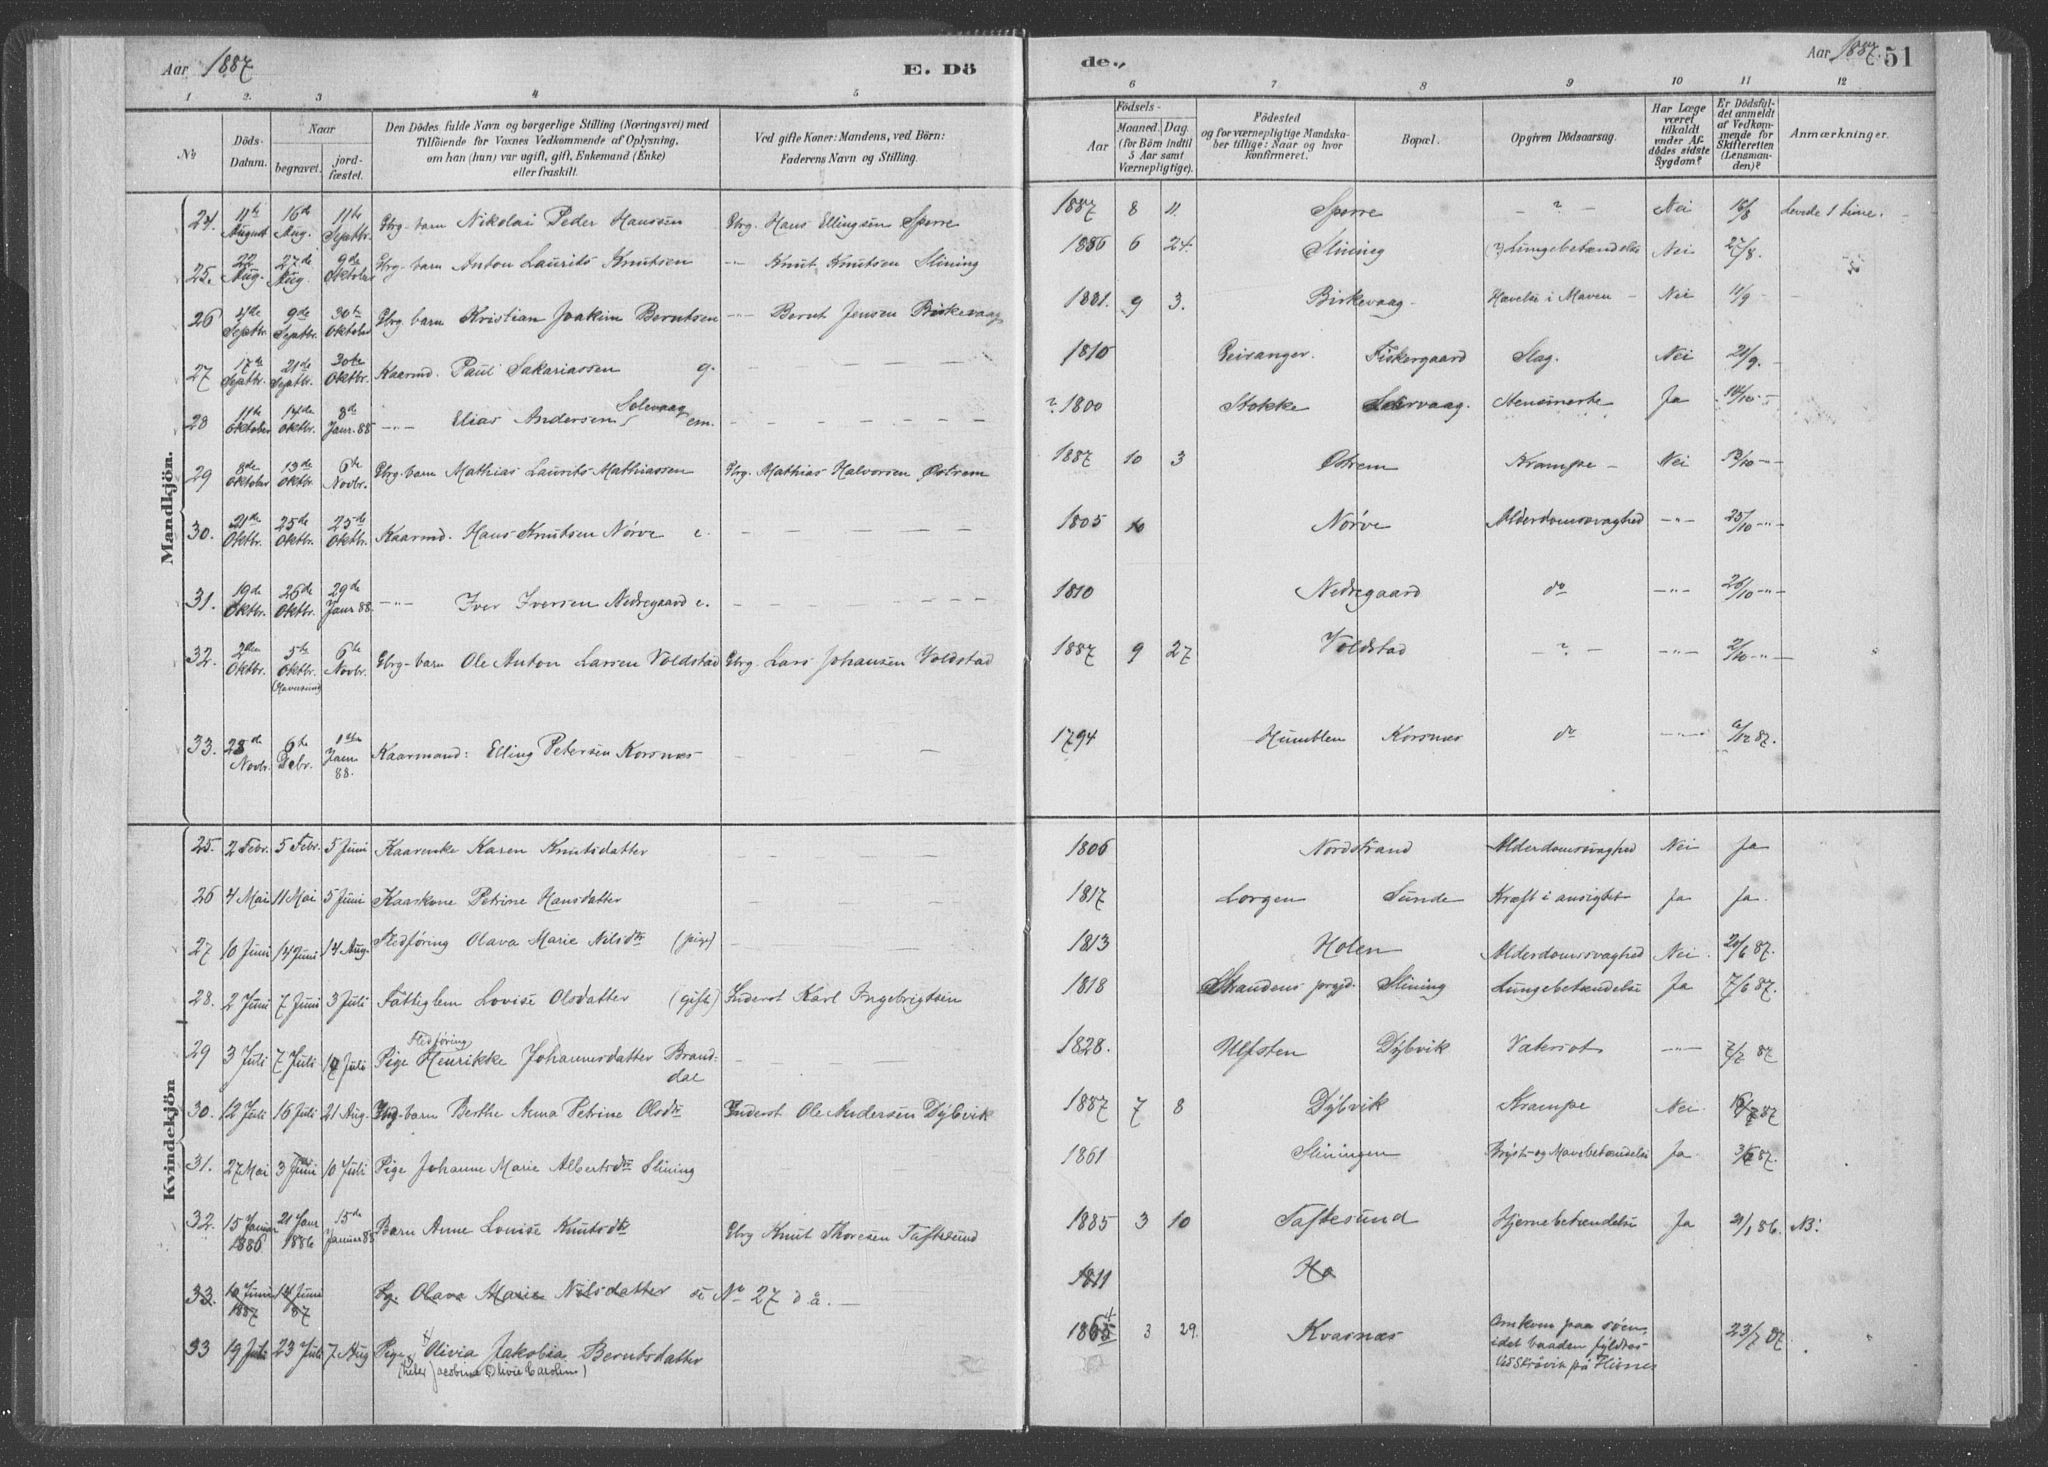 Aar 1887 E. Dö
de., Aar 1887. 51
1 2. 3 4 5 6 7 8 9 10 11 12
No
Döds-Datum.
Naar
begravet.
jordfæstet.
Den Dödes fulde Navn og borgerlige Stilling (Næringsvei) med
Tilföiende for Voxnes Vedkommende af Oplysning,
om han (hun) var ugift, gift, Enkemand (Enke)
eller fraskilt.
Ved gifte Koner: Mandens, ved Börn:
Faderens Navn og Stilling.
Födsels-
Aar
Maaned. Dag.
(for Börn indtil
5 Aar samt
Værnepligtige).
Födested
og for værnepligtige Mandskaber tillige: Naar og hvor
konfirmeret.
Bopæl.
Opgiven Dödsaarsag.
Har Læge
været
tilkaldt
under Afdödes sidste
Sygdom?
Er Dödsfaldet anmeldt
af Vedkommende for
Skifteretten
(Lensmanden)?
Anmærkninger.
Mandkjön.
24. 11te August 16de Aug. 11te Septbr. Gbrg. barn Nikolai Peder Hanssen Gbrg. Hans Ellingsen Sperre 1887 8 11. Sperre — ? — Nei 16/8 levede 1 time.
25. 22 Aug. 27de Aug. 9de Oktober Gbrg. barn Anton Laurits Knutsen -"- Knut Knutsen Slining 1886 6 24. Slining (?) Lungebetændelse Nei 27/8.
26 4de Septbr 9de Septbr. 30te Oktober Gbrg barn Kristian Joakim Berntsen -"- Bernt Jensen Birkevaag 1881. 9 3. Birkevaag Hævelse i Maven Nei 11/9
27 17te Septbr. 21de Septbr. 30te Oktbr. Kaarmd. Paul Sakariassen g. 1810 Geiranger. Fiskergaard Slag. Nei 21/9.
28 11te Oktober 14de Oktbr. 8de Janr. 88 -"- Elias Andersen Solevaag em. ? 1800 Stokke Solevaag. Stensmerte Ja 14/10
29 8de Oktober 13de Oktbr. 6te Novbr. Gbrg. barn Mathias Laurits Mathiassen Gbrg. Mathias Halvorsen Østrem 1887 10 3 Østrem Krampe Nei 13/10
30. 21de Oktbr. 25de Oktbr. 25de Oktbr. Kaarmd. Hans Knutsen Nørve e. 1805 Nørve Alderdomssvaghed -"- 25/10
31. 19de Oktbr. 26de Oktbr. 29de Janr 88. -"- Iver Iversen Nedregaard e. 1810 Nedregaard do -"- 26/10
32. 2den Oktbr. 5te Oktbr. (Havnsund) 6te Novbr. Gbrg-barn Ole Anton Larsen Voldstad Gbrg. Lars Johansen Voldstad 1887 9 27 Voldstad — ? — -"- 2/10
33. 28de Novbr. 6te Debr. 1ste Janr 88. Kaarmand: Elling Petersen Korsnæs 1794 Humblen Korsnæs do -"- 6/12 87.
Kvindekjön
25. 2 Febr. 5 Febr. 5 Juni Kaarenke Karen Knutsdatter 1806 Nordstrand Alderdomssvaghed Nei Ja
26 4 Mai 11 Mai 5 Juni Kaarkone Petrine Hansdatter 1817 Lorgen Sunde Kræft i ansigtet Ja Ja.
27 10 Juni 14 Juni 14 Aug. Fledføring Olava Marie Nilsdtr (pige) 1813 Holen Alderdomssvaghed Nei. 20/6 87.
28. 2 Juni 7 Juni 3 Juli Fattiglem Lovise Olsdatter (gift) Inderst Karl Ingebrigtsen 1818 Strandens prgjd. Slining Lungebetændelse Ja 7/6 87.
29 3 Juli 7 Juli 10 Juli Pige Fledføring Henrikke Johannesdatter Branddal 1828. Ulfsten Dybvik Vatersot -"- 7/7 87
30. 12 Juli 16 Juli 21 Aug. Gbrg-barn Berthe Anna Petrine Olsdtr Inderst Ole Andersen Dybvik 1887 7 8 Dybvik Krampe Nei 16/7 87
31. 27 Mai 3 Juni 10 Juli Pige Johanne Marie Albertsdtr Slining 1861 Sliningen Bryst- og Mavebetændelse Ja 3/6 87.
32. 15 Januar 1886 21 Janr 1886 15de Januar 88 Barn Anne Louise Knutsdtr Gbrg Knut Thoresen Taftesund 1885 3 10 Taftesund Hjernebetændelse Ja 21/1 86. NB:
33. 10 Juni 1887 14 Juni 87 Pige Olava Marie Nilsdatter se No 27 d å. 1811 Ho
33 19 Juli 23 Juli 7 Aug Pige Olivia Jakobia Berntsdatter 1865 4 3 29. Kvasnæs Omkom paa søen, idet baaden fyldtes 23/7 87.
(heter Jacobine Olivie Caroline) ved Skrövik på Hisnes